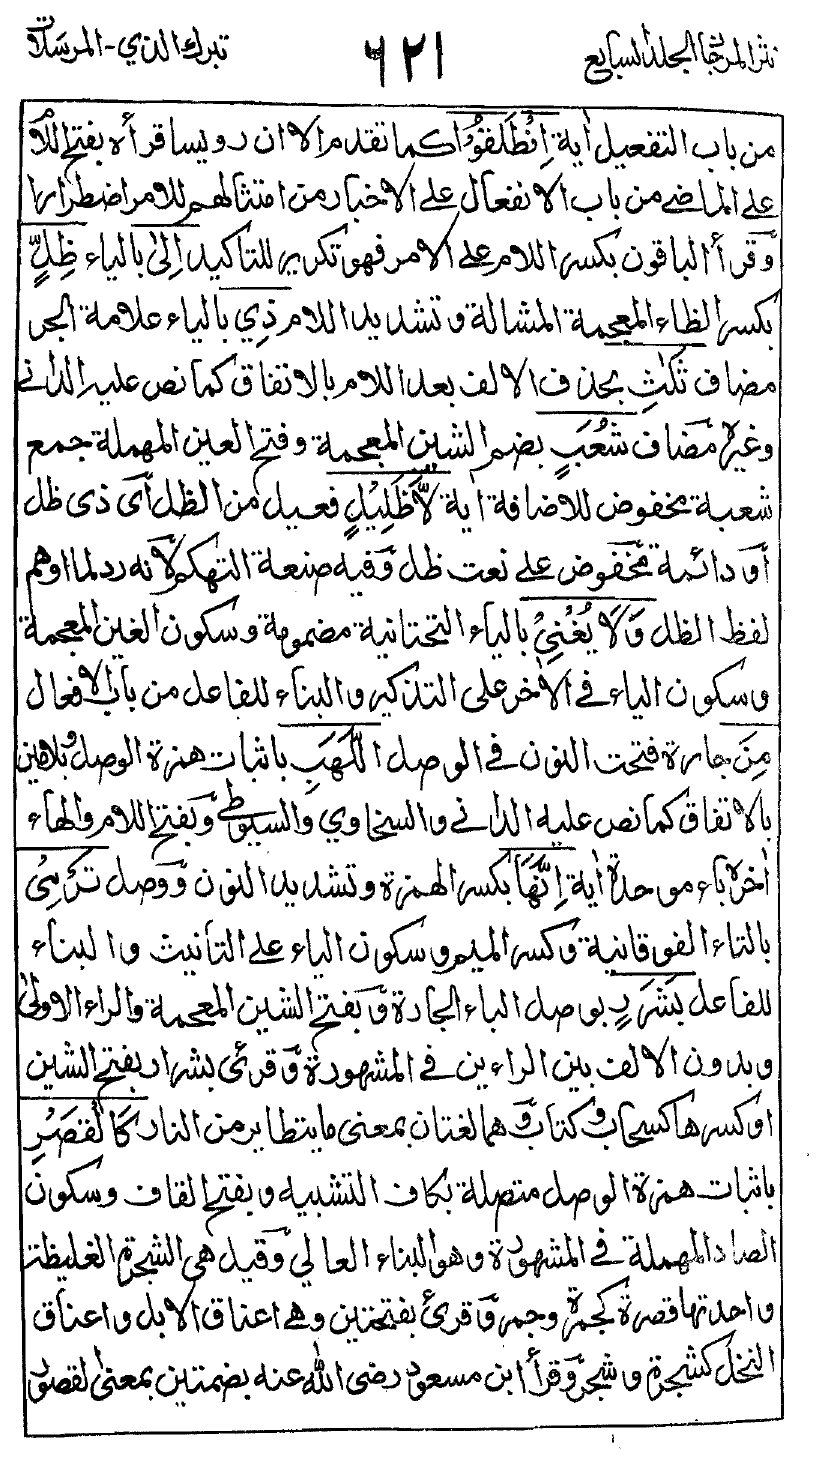 نثر المرجان المجلد السابع
٦٢١
تبرك الذي - المرسلات
من باب التفعيل آية اِنْطَلَقُوْٓا كما تقدم الا ان رويسا قرأه بفتح اللام
على الماضي من باب الانفعال على الاخبار من امتثالهم للامر اضطرارا
وقرأ الباقون بكسر اللام على الامر فهو تكرير للتاكيد اِلىٰ بالياء ظِلٍّ
بكسر الظاء المعجمة المشالة وتشديد اللام ذِي بالياء علامة الجر
مضاف ثَلٰثِ بحذف الالف بعد اللام بالاتفاق كما نص عليه الداني
وغيره مضاف شُعَبٍ بضم الشين المعجمة وفتح العين المهملة جمع
شعبة مخفوض للاضافة آية لَّاظَلِيْلٍ فعيل من الظل أى ذى ظل
أو دائمة مخفوض على نعت ظل وفيه صنعة التهكم لأنه رد لما اوهم
لفظ الظل وَلَا يُغْنِيْ بالياء التحتانية مضمومة وسكون الغين المعجمة
وسكون الياء فى الآخر على التذكير والبناء للفاعل من باب الافعال
مِنَ جارة فتحت النون فى الوصل اللَّهَبِ باثبات همزة الوصل وبلامين
بالاتفاق كما نص عليه الدانى والسخاوي والسيوطى وبفتح اللام والهاء
اخره باء موحدة آية اِنَّهَا بكسر الهمزة وتشديد النون ووصل تَرْمِيْ
بالتاء الفوقانية وكسر الميم وسكون الياء على التأنيث والبناء
للفاعل بِشَرَرٍ بوصل الباء الجارة وبفتح الشين المعجمة والراء الاولىٰ
وبدون الالف بين الراءين فى المشهورة وقرئ بشرار بفتح الشين
او كسرها كسحاب وكتاب وهما لغتان بمعنى ما يتطاير من النار كَالْقَصْرِ
باثبات همزة الوصل متصلة بكاف التشبيه وبفتح القاف وسكون
الصاد المهملة فى المشهورة وهو البناء العالي وقيل هى الشجرة الغليظة
واحدتها قصرة كجمرة وجمر وقرئ بفتحتين وهى اعناق الابل واعناق
النخل كشجرة وشجر وقرأ ابن مسعود رضى الله عنه بضمتين بمعنىٰ لقصور